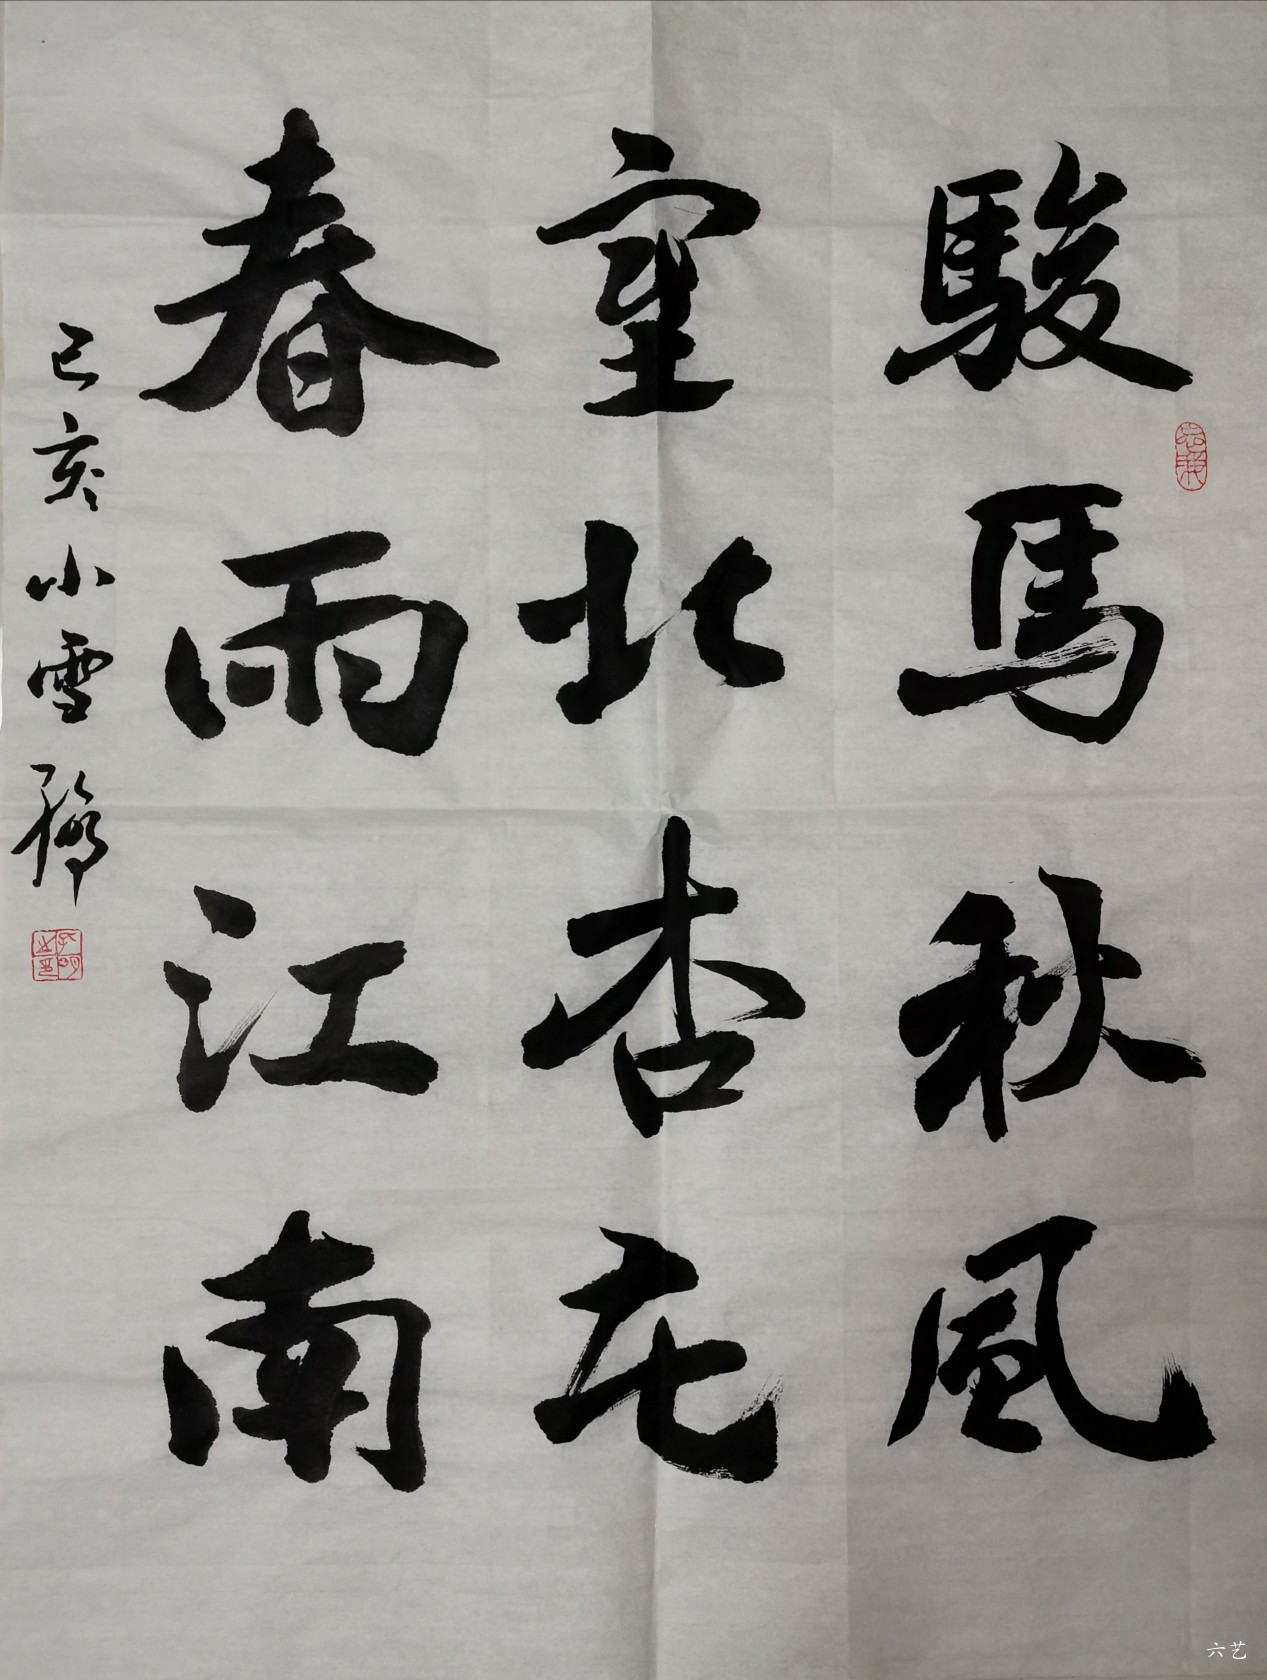 駿馬秋風
塞北杏花
春雨江南
己亥小雪
六艺